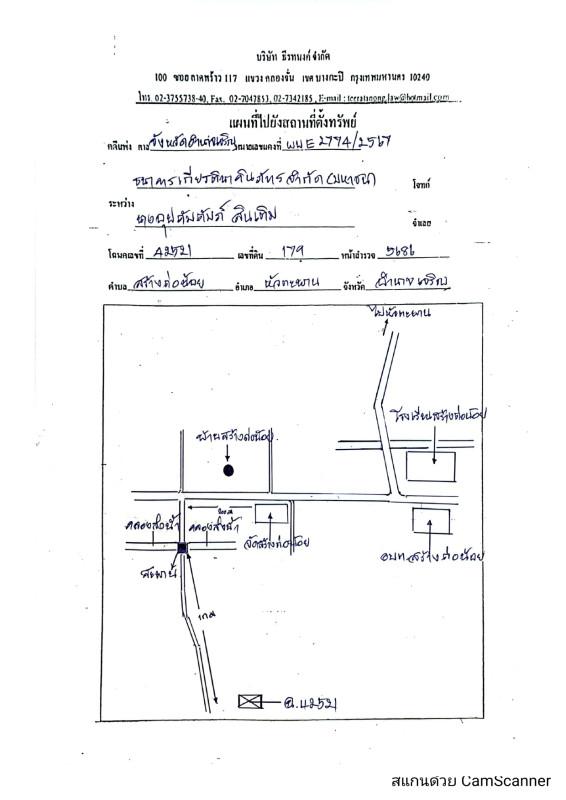 บริษัท ธีรทนงค์ จำกัด
100 ซอยลาดพร้าว 117 แขวงคลองจั่น เขตบางกะปิ กรุงเทพมหานคร 10240
โทร. 02-3755738-40, Fax. 02-7047853, 02-7342185, E-mail : teeratanong.law@hotmail.com
แผนที่ไปยังสถานที่ตั้งทรัพย์
คดีแพ่ง ศาล จังหวัดอำนาจเจริญ หมายเลขแดงที่ ผบE2774/2567
ธนาคารเกียรตินาคินภัทร จำกัด (มหาชน) โจทก์
ระหว่าง
สินเติม จำเลย
โฉนดเลขที่ 42521 เลขที่ดิน 179 หน้าสำรวจ 5686
ตำบล สร้างถ่อน้อย อำเภอ หัวตะพาน จังหวัด อำนาจเจริญ
ไปหัวตะพาน
โรงเรียนสร้างถ่อน้อย
บ้านสร้างถ่อน้อย
คลองส่งน้ำ คลองส่งน้ำ
วัดสร้างถ่อน้อย
อบต.สร้างถ่อน้อย
สะพาน
1กม
ฉ.42521
สแกนด้วย CamScanner